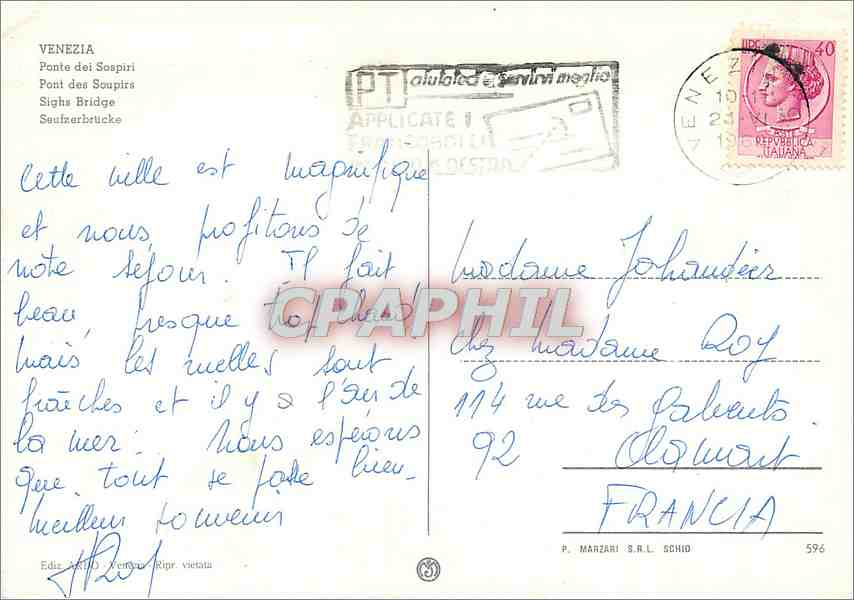 VENEZIA
Ponte dei Sospiri
Pont des Soupirs
Sighs Bridge
Seufzerbrücke
PT aiutateci a servirvi meglio
APPLICATE I
FRANCOBOLLI
A DESTRA
VENEZ
10
23 VI
196
LIRE 40
REPVBBLICA
ITALIANA
Cette ville est magnifique
et nous profitons de
notre séjour. Il fait
beau, presque trop chaud,
mais les ruelles sont
fraîches et il y a l'air de
la mer. Nous espérons
que tout se passe bien.
Meilleur souvenir
Roy
Madame
chez Madame Roy
114 rue des
92 Clamart
FRANCIA
CPAPHIL
Ediz. ARDO - Venezia - Ripr. vietata
P. MARZARI S.R.L. SCHIO 596